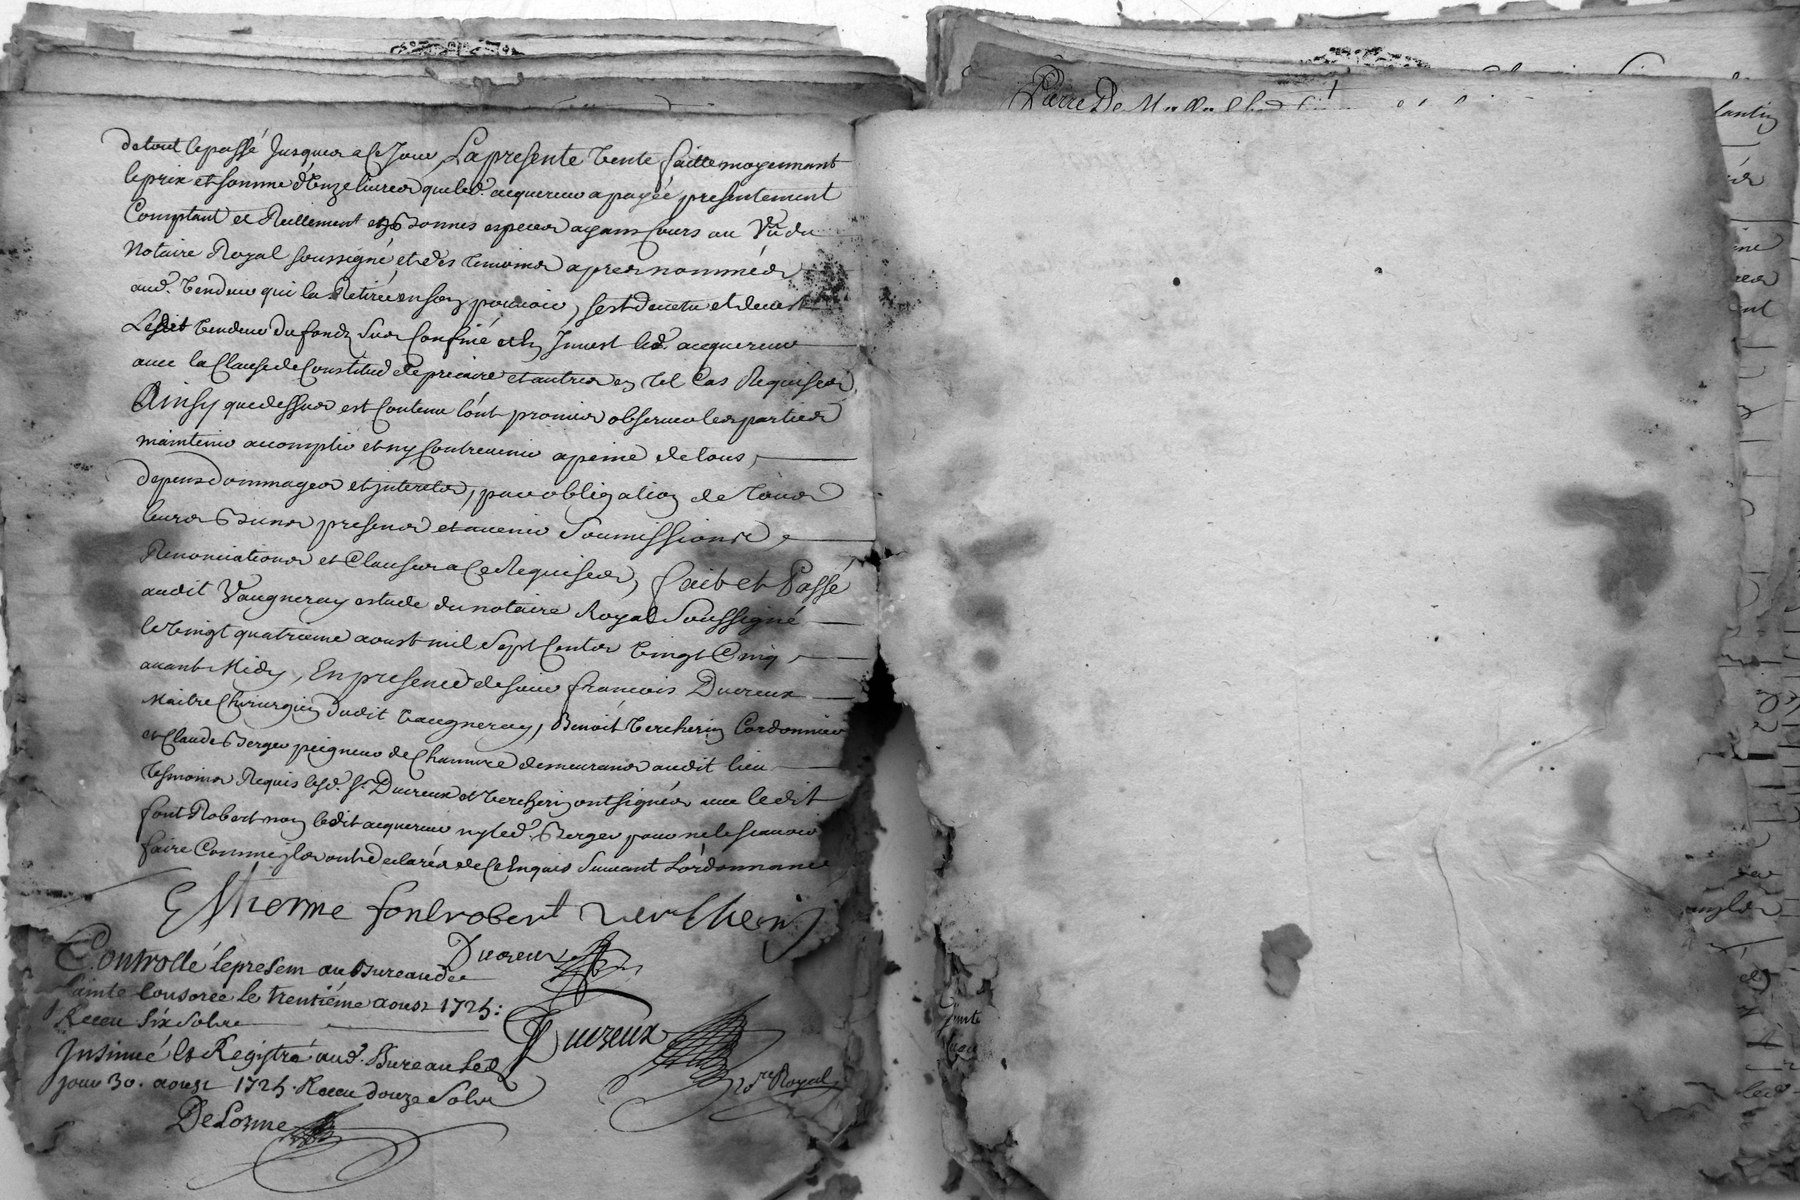 Pierre De
de tout le passé Jusques a Ce Jour La presente Vente faitte moyennant
le prix et somme d'Onze livres que led. acquereur a payée presentement
Comptant et Reellement en Bonnes especes ayans Cours au Vû du
Notaire Royal soussigné et des temoins apres nommés
aud. Vendeur qui la Retirée en son pouvoir, sest devetu et devest
Ledit Vendeur du fondz sus Confiné et en Invest led. acquereur
avec la Clause de Constitud de precaire et autres en tel Cas Requises
Ainsy que dessus est Contenu l'ont promis observer les parties
maintenir accomplir et ny Contrevenir a peine de tous
depens dommages et interets, par obligation de tous
leurs Biens presens et avenir Soumissions
Renonciations et Clauses a Ce Requises, fait et Passé
audit Vaugneray estude du notaire Royal Soussigné
le Vingt quatrieme aoust mil Sept Cents Vingt Cinq
avant Midy, En presence de sieur francois Ducreux
Maitre Chirurgien dudit Vaugneray, Benoit Vercherin Cordonnier
et Claude Berger peigneur de Chanvre demeurans audit lieu
tesmoins Requis lesd. Sr. Ducreux et Vercherin ont signés avec ledit
font Robert non ledit acquereur ny led. Berger pour ne le scavoir
faire Comme ils ont declarés de Ce Enquis Suivant L'ordonnance
Estienne fontrobert Verchein
Ducreux
Controllé le present au Bureau de
Sainte Consorce le trentiéme aoust 1725:
Receu six sols
Ducreux
Insinué et Registré aud. Bureau led.
jour 30. aoust 1725. Receu douze Sols
nre Royal
DeLorme